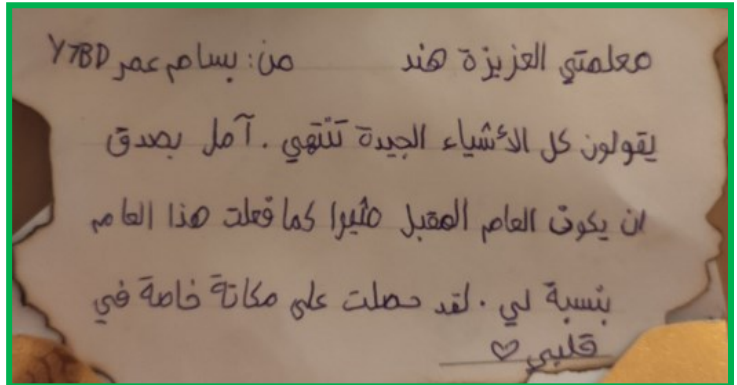 معلمتي العزيزة هند من: بسام عمر Y7BD
يقولون كل الأشياء الجيدة تنتهي. آمل بصدق
ان يكون العام المقبل مثيرا كما فعلت هذا العام
بنسبة لي. لقد حصلت على مكانة خاصة في
قلبي ♡